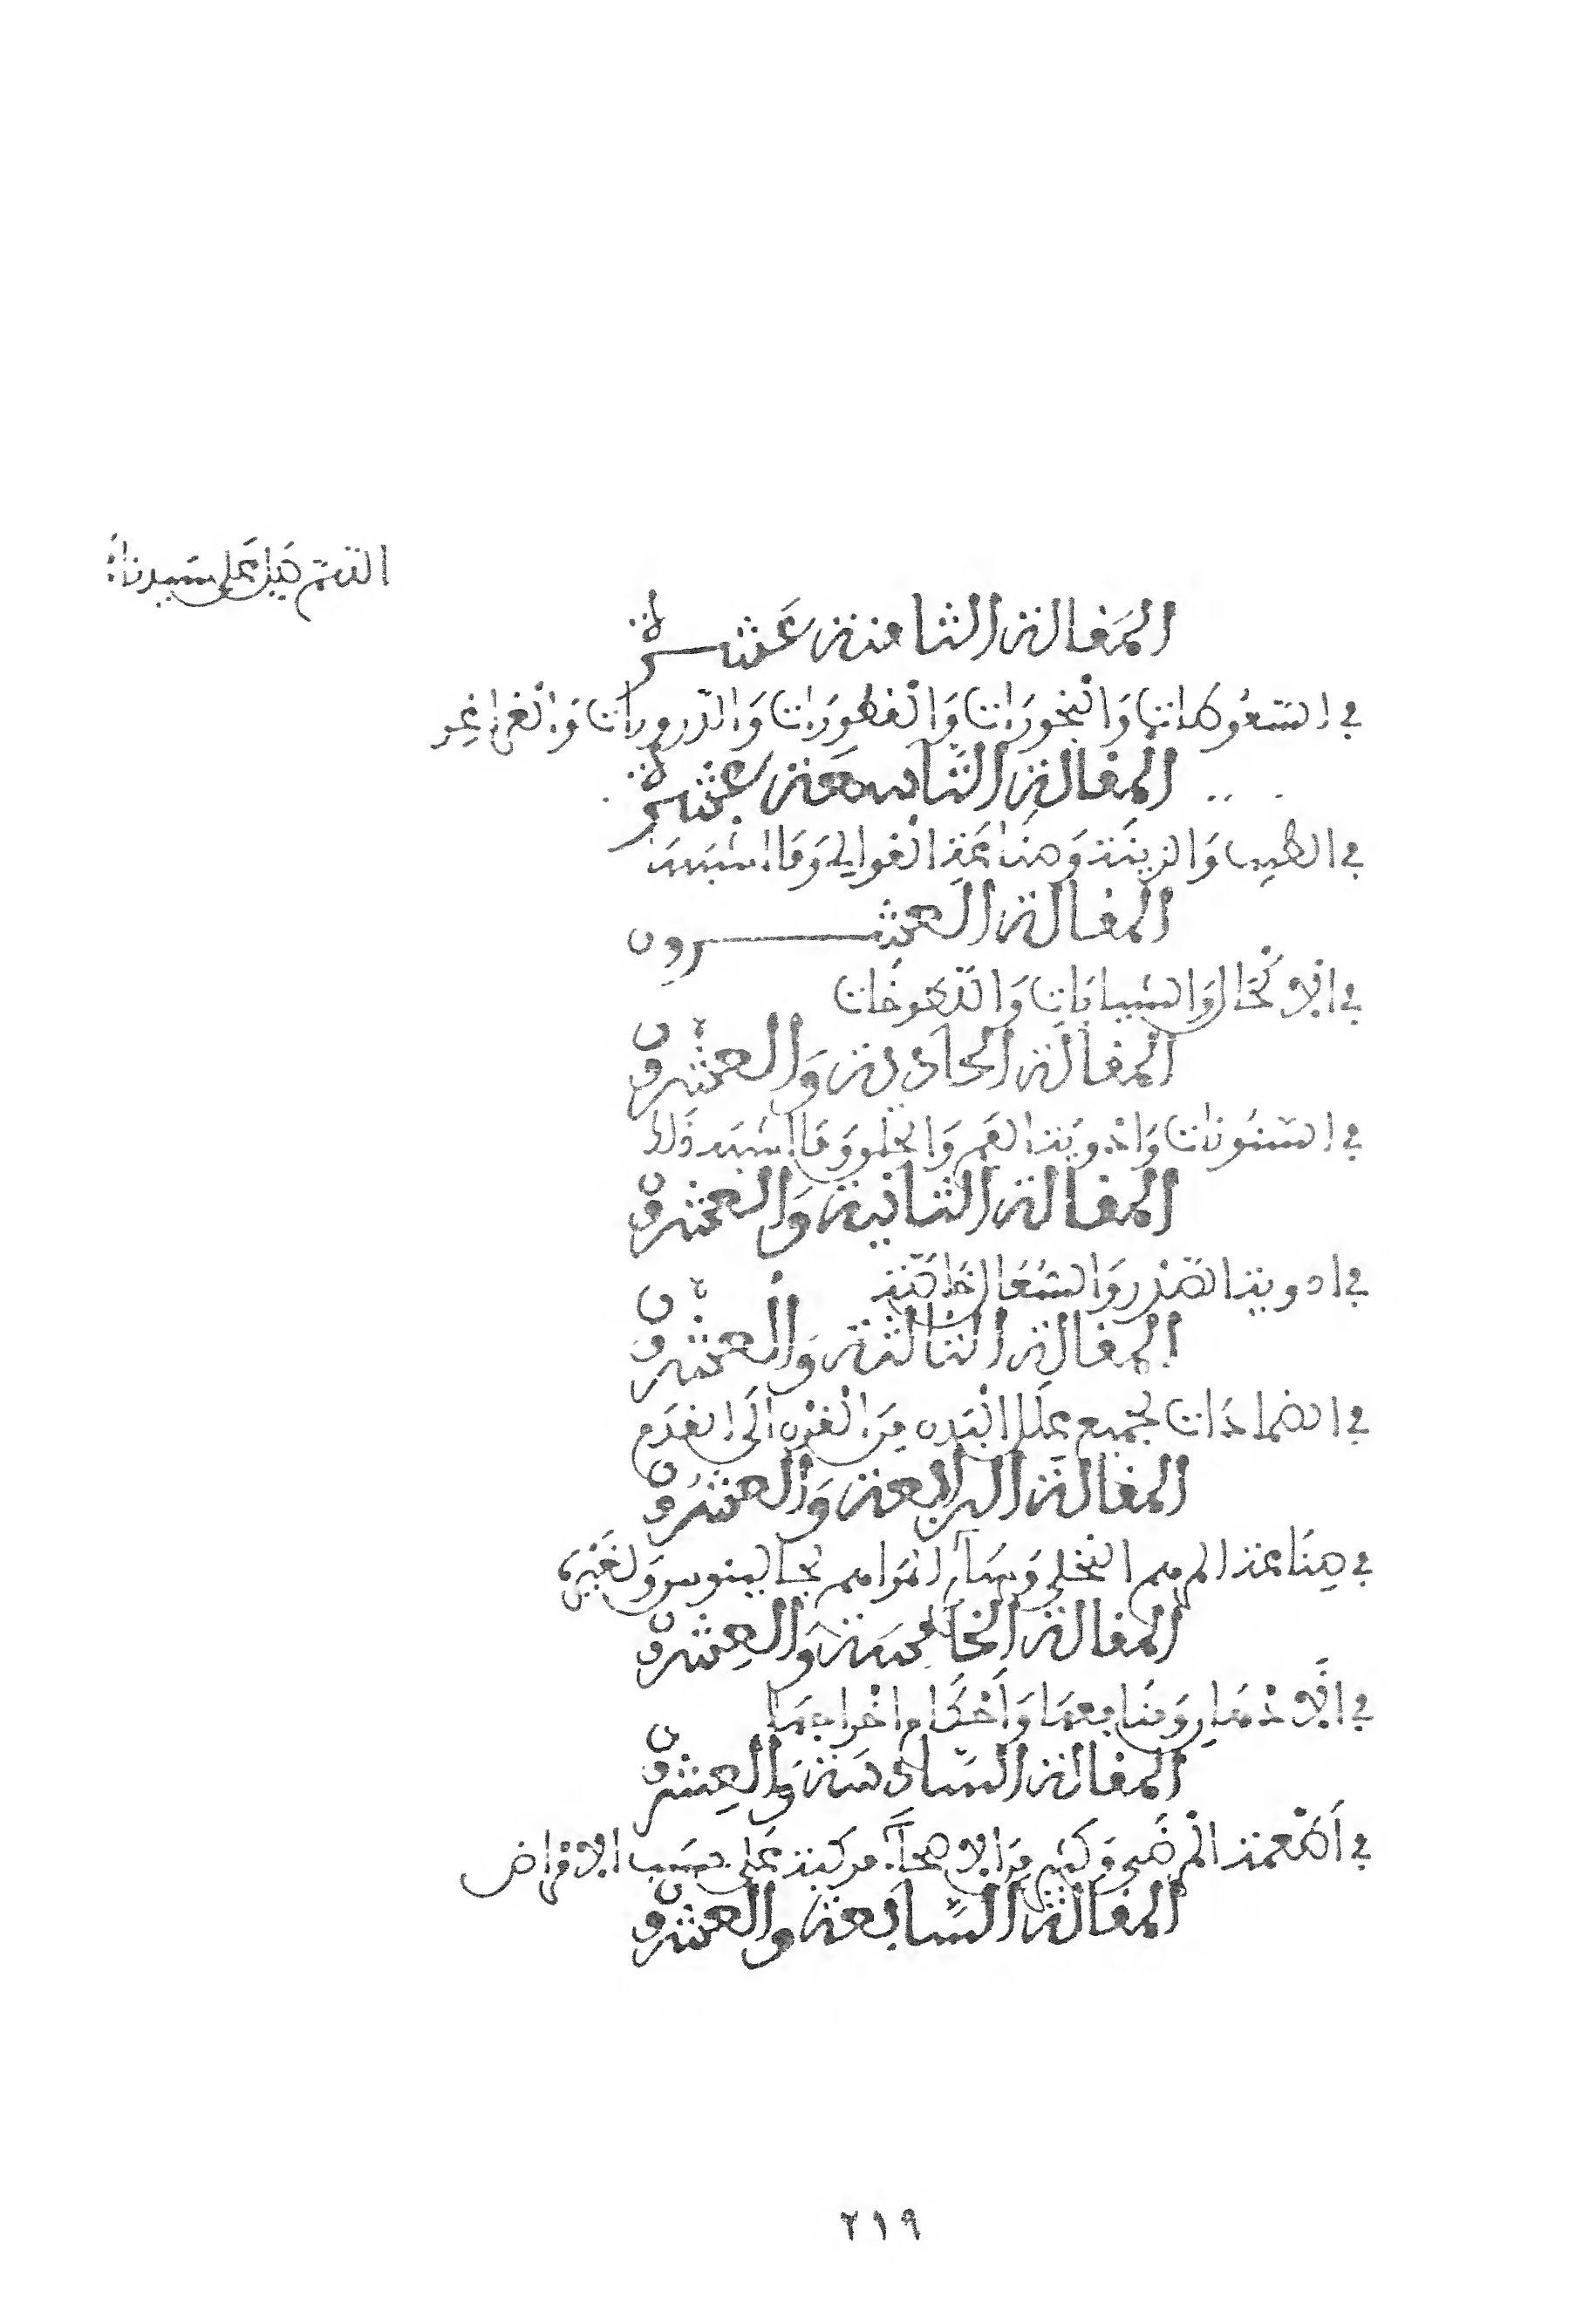 اللهم صل على سيدنا
المَقالة الثامنة عَشرة
في السَّعُوطات وَالْبَخورَات وَالْقطورَات وَالذّرورات وَالْغراغر
المقالة التَّاسعة عشرة
في الطيب وَالزينَة وَصنَاعَة الْغوالي وَمَا اشبَهَ
المقالة العشرون
في الْأكْحَال وَالشيافَات وَاللّعوقَات
المقالة الحادية وَالعشرون
في السنُونات وَادْويَة الفَم وَالحلْق وَمَا اشبَه ذَلك
المقالة الثانية وَالعشرون
في ادوية الصّدْر وَالسُّعَال خَاصّة
المقالة الثالثة وَالْعشرون
في الضمادَات لجميع عِلَل الْبَدن مِنَ الْقرْن الَى القدَم
المقالة الرابعة وَالعشرُون
في صِنَاعة المرهم النخلي وَسَآئر المَرَاهم لجالينوس وَلغَيْره
المقالة الخَامسَة وَالعِشرون
في الْأدْهَان وَمنَافعهَا وَأَحْكَام اخْراجهَا
المقالة السَّادسَة وَالعِشرون
في أطْعمَة الْمرضَى وَكَثير مِنَ الاصحَّآء مركبة عَلى حسَب الامْراض
المقالة السَّابعة والعشرون
٢١٩